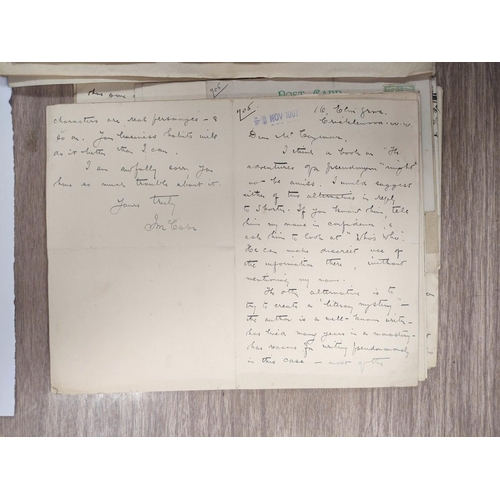 POST CARD
906
16, Elm Grove
Cricklewood N.W.
NOV 190
Dear Mr
I think a book on "The
adventures of a pseudonym" might
not be amiss. I would suggest
either of two alternatives in reply
to Shorter. If you know him, tell
him my name in confidence, &
ask him to look at "Who's Who".
He can make discreet use of
the information there, without
mentioning my name.
The other alternative is to
try to create a "literary mystery" –
the author is a well-known writer –
has lived many years in a monastery –
has reasons for writing pseudonymously
in this case – most of the
characters are real personages – &
so on. Your business habits will
do it better than I can.
I am awfully sorry you
have so much trouble about it.
Yours truly